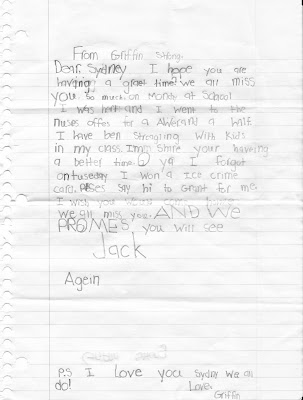 From Griffin Strong.
Dear, Sydney I hope you are
having a great time! we all miss
you so much on Monday at School
I was hert and I went to the
nuses offes for a Awerand a half
I have ben Strugling with Kids
in my class. Im Shire your haveing
a better time. ya I forgot
ontuseday I won a Ice crime
card. Pleses Say hi to Grant for me
I wish you
We all miss you. AND We
PROMES you will see
Jack
Agein
P.S I love you Sydney We all
do! Love,
Griffin